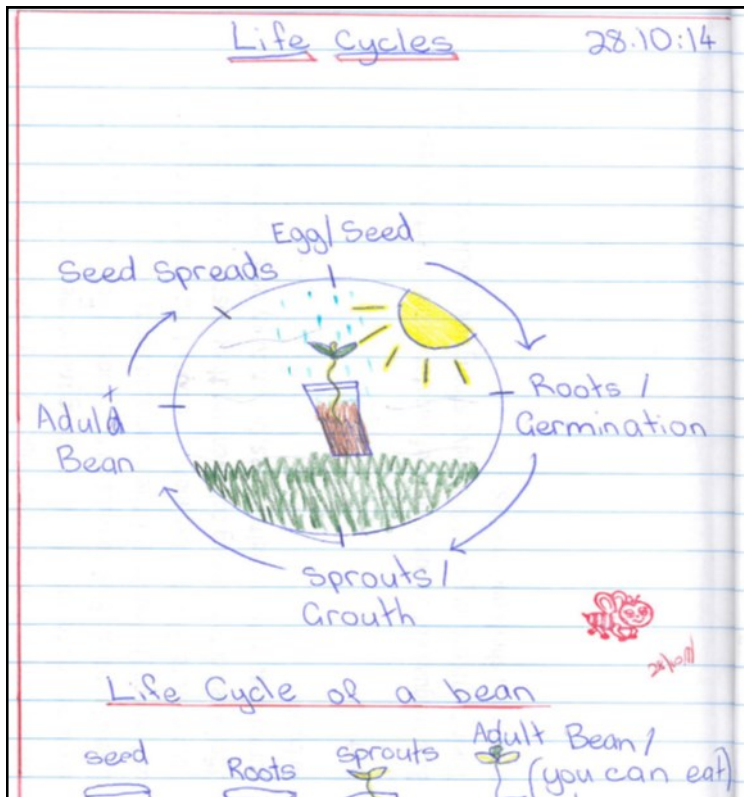 Life Cycles 28.10:14
Egg/Seed
Seed Spreads
Roots /
Germination
Adult
Bean
Sprouts /
Grouth
Life Cycle of a bean
seed Roots sprouts Adult Bean /
(you can eat)